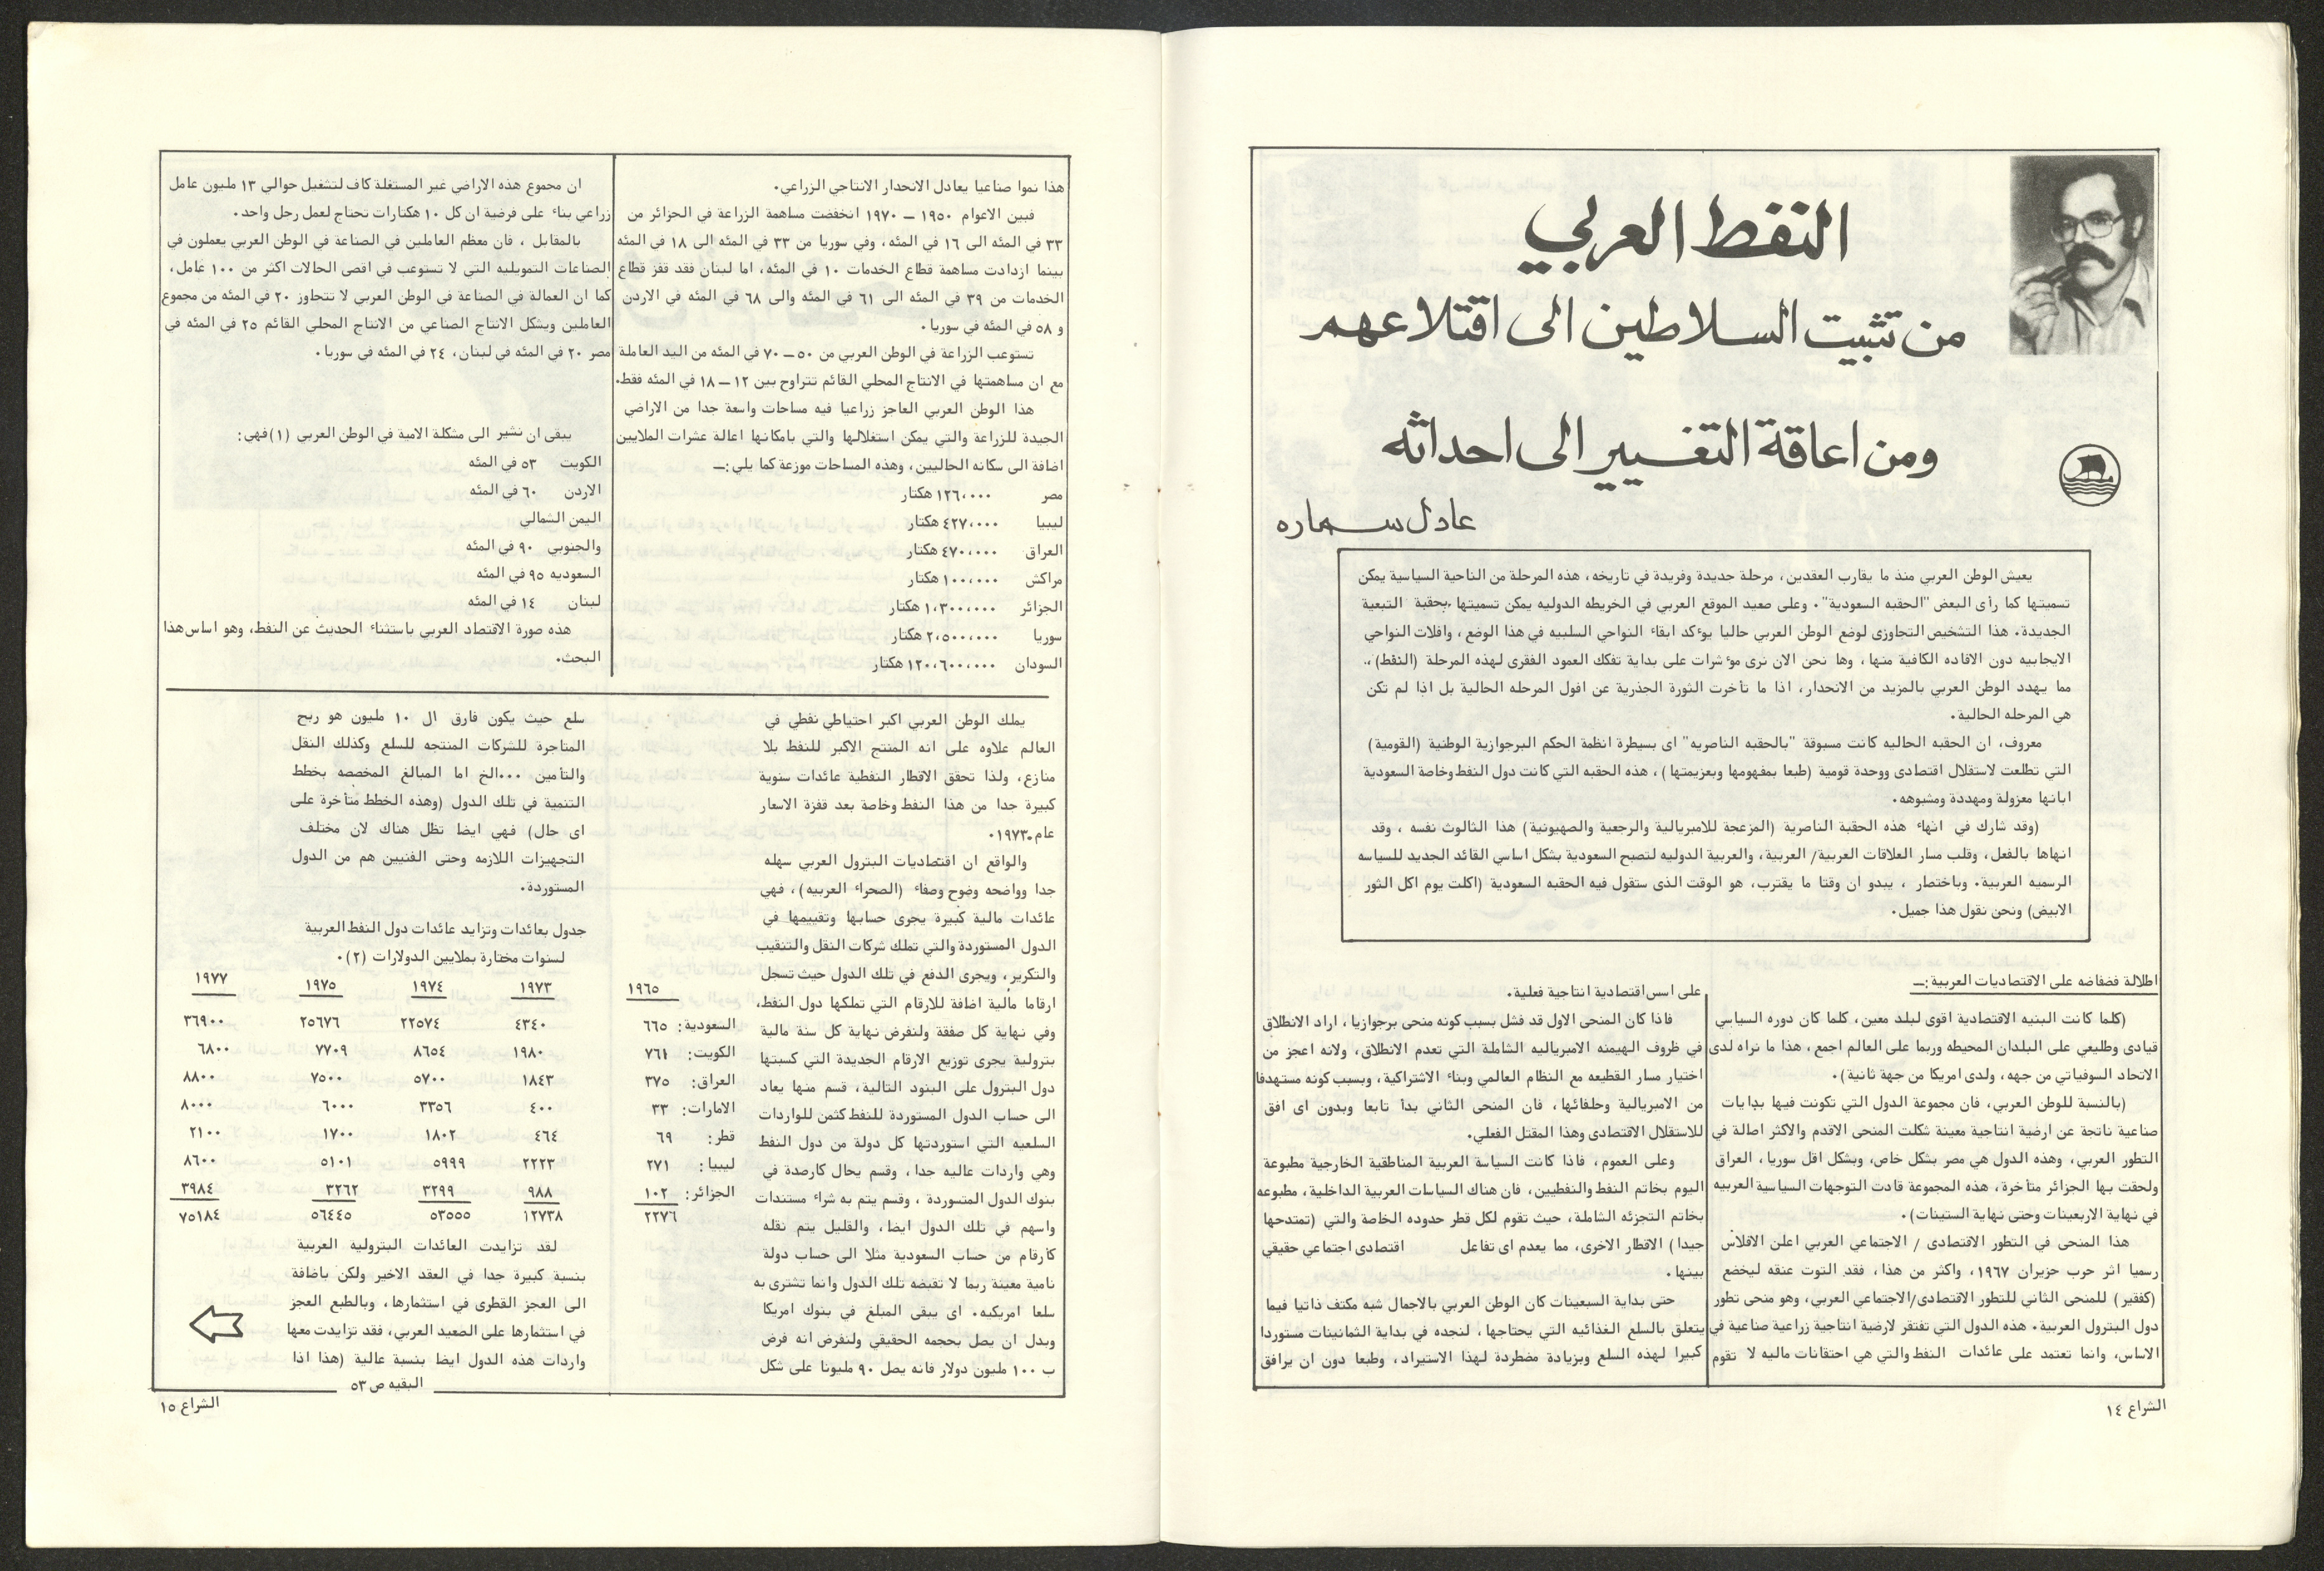 النفط العربي
من تثبيت السلاطين الى اقتلاعهم
ومن اعاقة التغيير الى احداثه
عادل سماره
يعيش الوطن العربي منذ ما يقارب العقدين، مرحلة جديدة وفريدة في تاريخه، هذه المرحلة من الناحية السياسية يمكن
تسميتها كما رأى البعض "الحقبه السعودية". وعلى صعيد الموقع العربي في الخريطه الدوليه يمكن تسميتها بحقبة التبعية
الجديدة. هذا التشخيص التجاوزى لوضع الوطن العربي حاليا يوءكد ابقاء النواحي السلبيه في هذا الوضع، وافلات النواحي
الايجابيه دون الافاده الكافية منها، وها نحن الان نرى موءشرات على بداية تفكك العمود الفقرى لهذه المرحلة (النفط)،
مما يهدد الوطن العربي بالمزيد من الانحدار، اذا ما تأخرت الثورة الجذرية عن افول المرحله الحالية بل اذا لم تكن
هي المرحله الحالية.
معروف، ان الحقبه الحاليه كانت مسبوقة "بالحقبه الناصريه" اى بسيطرة انظمة الحكم البرجوازية الوطنية (القومية)
التي تطلعت لاستقلال اقتصادى ووحدة قومية (طبعا بمفهومها وبعزيمتها)، هذه الحقبه التي كانت دول النفط وخاصة السعودية
ابانها معزولة ومهددة ومشبوهه.
(وقد شارك في انهاء هذه الحقبة الناصرية (المزعجة للامبريالية والرجعية والصهيونية) هذا الثالوث نفسه، وقد
انهاها بالفعل، وقلب مسار العلاقات العربية/ العربية، والعربية الدوليه لتصبح السعودية بشكل اساسي القائد الجديد للسياسه
الرسميه العربية. وباختصار، يبدو ان وقتا ما يقترب، هو الوقت الذى ستقول فيه الحقبه السعودية (اكلت يوم اكل الثور
الابيض) ونحن نقول هذا جميل.
اطلالة فضفاضه على الاقتصاديات العربية:ــ
(كلما كانت البنيه الاقتصادية اقوى لبلد معين، كلما كان دوره السياسي
قيادى وطليعي على البلدان المحيطه وربما على العالم اجمع، هذا ما نراه لدى
الاتحاد السوفياتي من جهه، ولدى امريكا من جهة ثانية).
(بالنسبة للوطن العربي، فان مجموعة الدول التي تكونت فيها بدايات
صناعية ناتجة عن ارضية انتاجية معينة شكلت المنحى الاقدم والاكثر اصالة في
التطور العربي، وهذه الدول هي مصر بشكل خاص، وبشكل اقل سوريا، العراق
ولحقت بها الجزائر متأخرة، هذه المجموعة قادت التوجهات السياسية العربيه
في نهاية الاربعينات وحتى نهاية الستينات).
هذا المنحى في التطور الاقتصادى / الاجتماعي العربي اعلن الافلاس
رسميا اثر حرب حزيران ١٩٦٧، واكثر من هذا، فقد التوت عنقه ليخضع
(كفقير) للمنحى الثاني للتطور الاقتصادى/الاجتماعي العربي، وهو منحى تطور
دول البترول العربية. هذه الدول التي تفتقر لارضية انتاجية زراعية صناعية في
الاساس، وانما تعتمد على عائدات النفط والتي هي احتقانات ماليه لا تقوم
على اسس اقتصادية انتاجية فعلية.
فاذا كان المنحى الاول قد فشل بسبب كونه منحى برجوازيا، اراد الانطلاق
في ظروف الهيمنه الامبرياليه الشاملة التي تعدم الانطلاق، ولانه اعجز من
اختيار مسار القطيعه مع النظام العالمي وبناء الاشتراكية، وبسبب كونه مستهدفا
من الامبريالية وحلفائها، فان المنحى الثاني بدأ تابعا وبدون اى افق
للاستقلال الاقتصادى وهذا المقتل الفعلي.
وعلى العموم، فاذا كانت السياسة العربية المناطقية الخارجية مطبوعة
اليوم بخاتم النفط والنفطيين، فان هناك السياسات العربية الداخلية، مطبوعه
بخاتم التجزئه الشاملة، حيث تقوم لكل قطر حدوده الخاصة والتي (تمتدحها
جيدا) الاقطار الاخرى، مما يعدم اى تفاعل اقتصادى اجتماعي حقيقي
بينها.
حتى بداية السبعينات كان الوطن العربي بالاجمال شبه مكتف ذاتيا فيما
يتعلق بالسلع الغذائيه التي يحتاجها، لنجده في بداية الثمانينات مستوردا
كبيرا لهذه السلع وبزيادة مضطردة لهذا الاستيراد، وطبعا دون ان يرافق
الشراع ١٤
هذا نموا صناعيا يعادل الانحدار الانتاجي الزراعي.
فبين الاعوام ١٩٥٠ ــ ١٩٧٠ انخفضت مساهمة الزراعة في الجزائر من
٣٣ في المئه الى ١٦ في المئه، وفي سوريا من ٣٣ في المئه الى ١٨ في المئه
بينما ازدادت مساهمة قطاع الخدمات ١٠ في المئه، اما لبنان فقد قفز قطاع
الخدمات من ٣٩ في المئه الى ٦١ في المئه والى ٦٨ في المئه في الاردن
و ٥٨ في المئه في سوريا.
تستوعب الزراعة في الوطن العربي من ٥٠ــ٧٠ في المئه من اليد العاملة
مع ان مساهمتها في الانتاج المحلي القائم تتراوح بين ١٢ ــ ١٨ في المئه فقط.
هذا الوطن العربي العاجز زراعيا فيه مساحات واسعة جدا من الاراضي
الجيدة للزراعة والتي يمكن استغلالها والتي بامكانها اعالة عشرات الملايين
اضافة الى سكانه الحاليين، وهذه المساحات موزعة كما يلي:ــ
مصر ١٢٦،٠٠٠ هكتار
ليبيا ٤٢٧،٠٠٠ هكتار
العراق ٤٧٠،٠٠٠ هكتار
مراكش ١٠٠،٠٠٠ هكتار
الجزائر ١،٣٠٠،٠٠٠ هكتار
سوريا ٢،٥٠٠،٠٠٠ هكتار
السودان ١٢٠،٦٠٠،٠٠٠ هكتار
ان مجموع هذه الاراضي غير المستغلة كاف لتشغيل حوالي ١٣ مليون عامل
زراعي بناء على فرضية ان كل ١٠ هكتارات تحتاج لعمل رجل واحد.
بالمقابل، فان معظم العاملين في الصناعة في الوطن العربي يعملون في
الصناعات التمويليه التي لا تستوعب في اقصى الحالات اكثر من ١٠٠ عامل،
كما ان العمالة في الصناعة في الوطن العربي لا تتجاوز ٢٠ في المئه من مجموع
العاملين ويشكل الانتاج الصناعي من الانتاج المحلي القائم ٢٥ في المئه في
مصر ٢٠ في المئه في لبنان، ٢٤ في المئه في سوريا.
يبقى ان نشير الى مشكلة الامية في الوطن العربي (١)فهي:
الكويت ٥٣ في المئه
الاردن ٦٠ في المئه
اليمن الشمالي
والجنوبي ٩٠ في المئه
السعوديه ٩٥ في المئه
لبنان ١٤ في المئه
هذه صورة الاقتصاد العربي باستثناء الحديث عن النفط، وهو اساس هذا
البحث.
يملك الوطن العربي اكبر احتياطي نفطي في
العالم علاوه على انه المنتج الاكبر للنفط بلا
منازع، ولذا تحقق الاقطار النفطية عائدات سنوية
كبيرة جدا من هذا النفط وخاصة بعد قفزة الاسعار
عام ١٩٧٣.
والواقع ان اقتصاديات البترول العربي سهله
جدا وواضحه وضوح وصفاء (الصحراء العربيه)، فهي
عائدات مالية كبيرة يجرى حسابها وتقييمها في
الدول المستوردة والتي تملك شركات النقل والتنقيب
والتكرير، ويجرى الدفع في تلك الدول حيث تسجل
ارقاما مالية اضافة للارقام التي تملكها دول النفط،
وفي نهاية كل صفقة ولنفرض نهاية كل سنة مالية
بترولية يجرى توزيع الارقام الجديدة التي كسبتها
دول البترول على البنود التالية، قسم منها يعاد
الى حساب الدول المستوردة للنفط كثمن للواردات
السلعيه التي استوردتها كل دولة من دول النفط
وهي واردات عاليه جدا، وقسم يحال كارصدة في
بنوك الدول المتسوردة، وقسم يتم به شراء مستندات
واسهم في تلك الدول ايضا، والقليل يتم نقله
كأرقام من حساب السعودية مثلا الى حساب دولة
نامية معينة ربما لا تقبضه تلك الدول وانما تشترى به
سلعا امريكيه. اى يبقى المبلغ في بنوك امريكا
وبدل ان يصل بحجمه الحقيقي ولنفرض انه قرض
ب ١٠٠ مليون دولار فانه يصل ٩٠ مليونا على شكل
سلع حيث يكون فارق ال ١٠ مليون هو ربح
المتاجرة للشركات المنتجه للسلع وكذلك النقل
والتأمين ...الخ اما المبالغ المخصصه بخطط
التنمية في تلك الدول (وهذه الخطط متأخرة على
اى حال) فهي ايضا تظل هناك لان مختلف
التجهيزات اللازمه وحتى الفنيين هم من الدول
المستوردة.
جدول بعائدات وتزايد عائدات دول النفط العربية
لسنوات مختارة بملايين الدولارات (٢).
١٩٦٥ ١٩٧٣ ١٩٧٤ ١٩٧٥ ١٩٧٧
السعودية: ٦٦٥ ٤٣٤٠ ٢٢٥٧٤ ٢٥٦٧٦ ٣٦٩٠٠
الكويت: ٧٦١ ١٩٨٠ ٨٦٥٤ ٧٧٠٩ ٦٨٠٠
العراق: ٣٧٥ ١٨٤٣ ٥٧٠٠ ٧٥٠٠ ٨٨٠٠
الامارات: ٣٣ ٤٠٠ ٣٣٥٦ ٦٠٠٠ ٨٠٠٠
قطر: ٦٩ ٤٦٤ ١٨٠٢ ١٧٠٠ ٢١٠٠
ليبيا: ٢٧١ ٢٢٢٣ ٥٩٩٩ ٥١٠١ ٨٦٠٠
الجزائر: ١٠٢ ٩٨٨ ٣٢٩٩ ٣٢٦٢ ٣٩٨٤
٢٢٧٦ ١٢٧٣٨ ٥٣٥٥٥ ٥٦٤٤٥ ٧٥١٨٤
لقد تزايدت العائدات البترولية العربية
بنسبة كبيرة جدا في العقد الاخير ولكن باضافة
الى العجز القطرى في استثمارها، وبالطبع العجز
في استثمارها على الصعيد العربي، فقد تزايدت معها
واردات هذه الدول ايضا بنسبة عالية (هذا اذا
البقيه ص ٥٣
الشراع ١٥